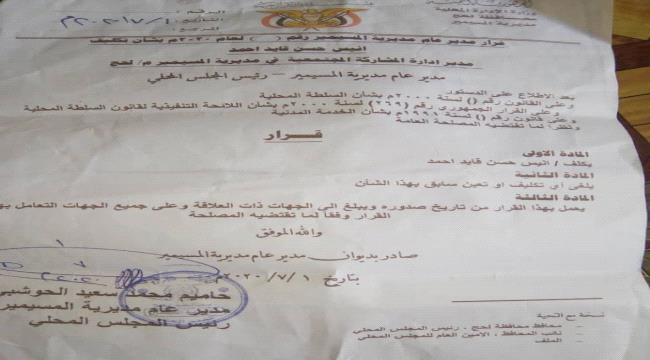 وزارة الإدارة المحلية
محافظة لحج
مديرية المسيمير
الرقم :
التاريخ : ٢٠٢٠/٧/١
قرار مدير عام مديرية المسيمير رقم ( ) لعام ٢٠٢٠م بشان تكليف
انيس حسن قايد احمد
مدير ادارة المشاركة المجتمعية في مديرية المسيمير م/ لحج
مدير عام مديرية المسيمير – رئيس المجلس المحلي
بعد الاطلاع على الدستور
وعلى القانون رقم () لسنة ٢٠٠٠م بشان السلطة المحلية
وعلى القرار الجمهوري رقم (٢٦٩) لسنة ٢٠٠٠م بشان اللائحة التنفيذية لقانون السلطة المحلية
وعلى قانون رقم () لسنة ١٩٩١م بشان الخدمة المدنية
ونظرا لما تقتضيه المصلحة العامة
قرار
المادة الاولى
يكلف / انيس حسن قايد احمد
المادة الثانية
يلغى أي تكليف او تعين سابق بهذا الشأن
المادة الثالثة
يعمل بهذا القرار من تاريخ صدوره ويبلغ الى الجهات ذات العلاقة وعلى جميع الجهات التعامل
القرار وفقا لما تقتضيه المصلحة
والله الموفق
صادر بديوان مدير عام مديرية المسيمير
بتاريخ ٢٠٢٠/٧/١م
حاميم محمد سعيد الحوشبي
مدير عام مديرية المسيمير
رئيس المجلس المحلي
نسخة مع التحية
– محافظ محافظة لحج ، رئيس المجلس المحلي
– نائب المحافظ ، الامين العام للمجلس المحلي
– الملف